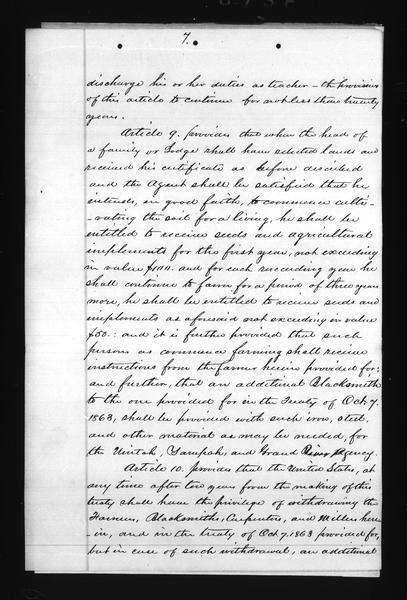 7.
discharge his or her duties as teacher – the provisions
of this article to continue for not less than twenty
years.
Article 9. provides that when the head of
a family or Lodge shall have selected lands and
received his certificate as before described
and the Agent shall be satisfied that he
intends, in good faith, to commence culti-
-vating the soil for a living, he shall be
entitled to receive seeds and agricultural
implements for the first year, not exceeding
in value $100. and for each succeeding year he
shall continue to farm for a period of three years
more, he shall be entitled to receive seeds and
implements as aforesaid not exceeding in value
$50.: and it is further provided that such
persons as commence farming shall receive
instructions from the farmer herein provided for:
and further, that an additional Blacksmith
to the one provided for in the Treaty of Oct. 7.
1863, shall be provided with such iron, steel,
and other material as may be needed, for
the Uintah, Yampah, and Grand River Agency.
Article 10. provides that the United States, at
any time after ten years from the making of this
treaty shall have the privilege of withdrawing the
Farmers, Blacksmiths, Carpenters, and Miller here-
-in, and in the treaty of Oct 7, 1863 provided for,
but in case of such withdrawal, an additional